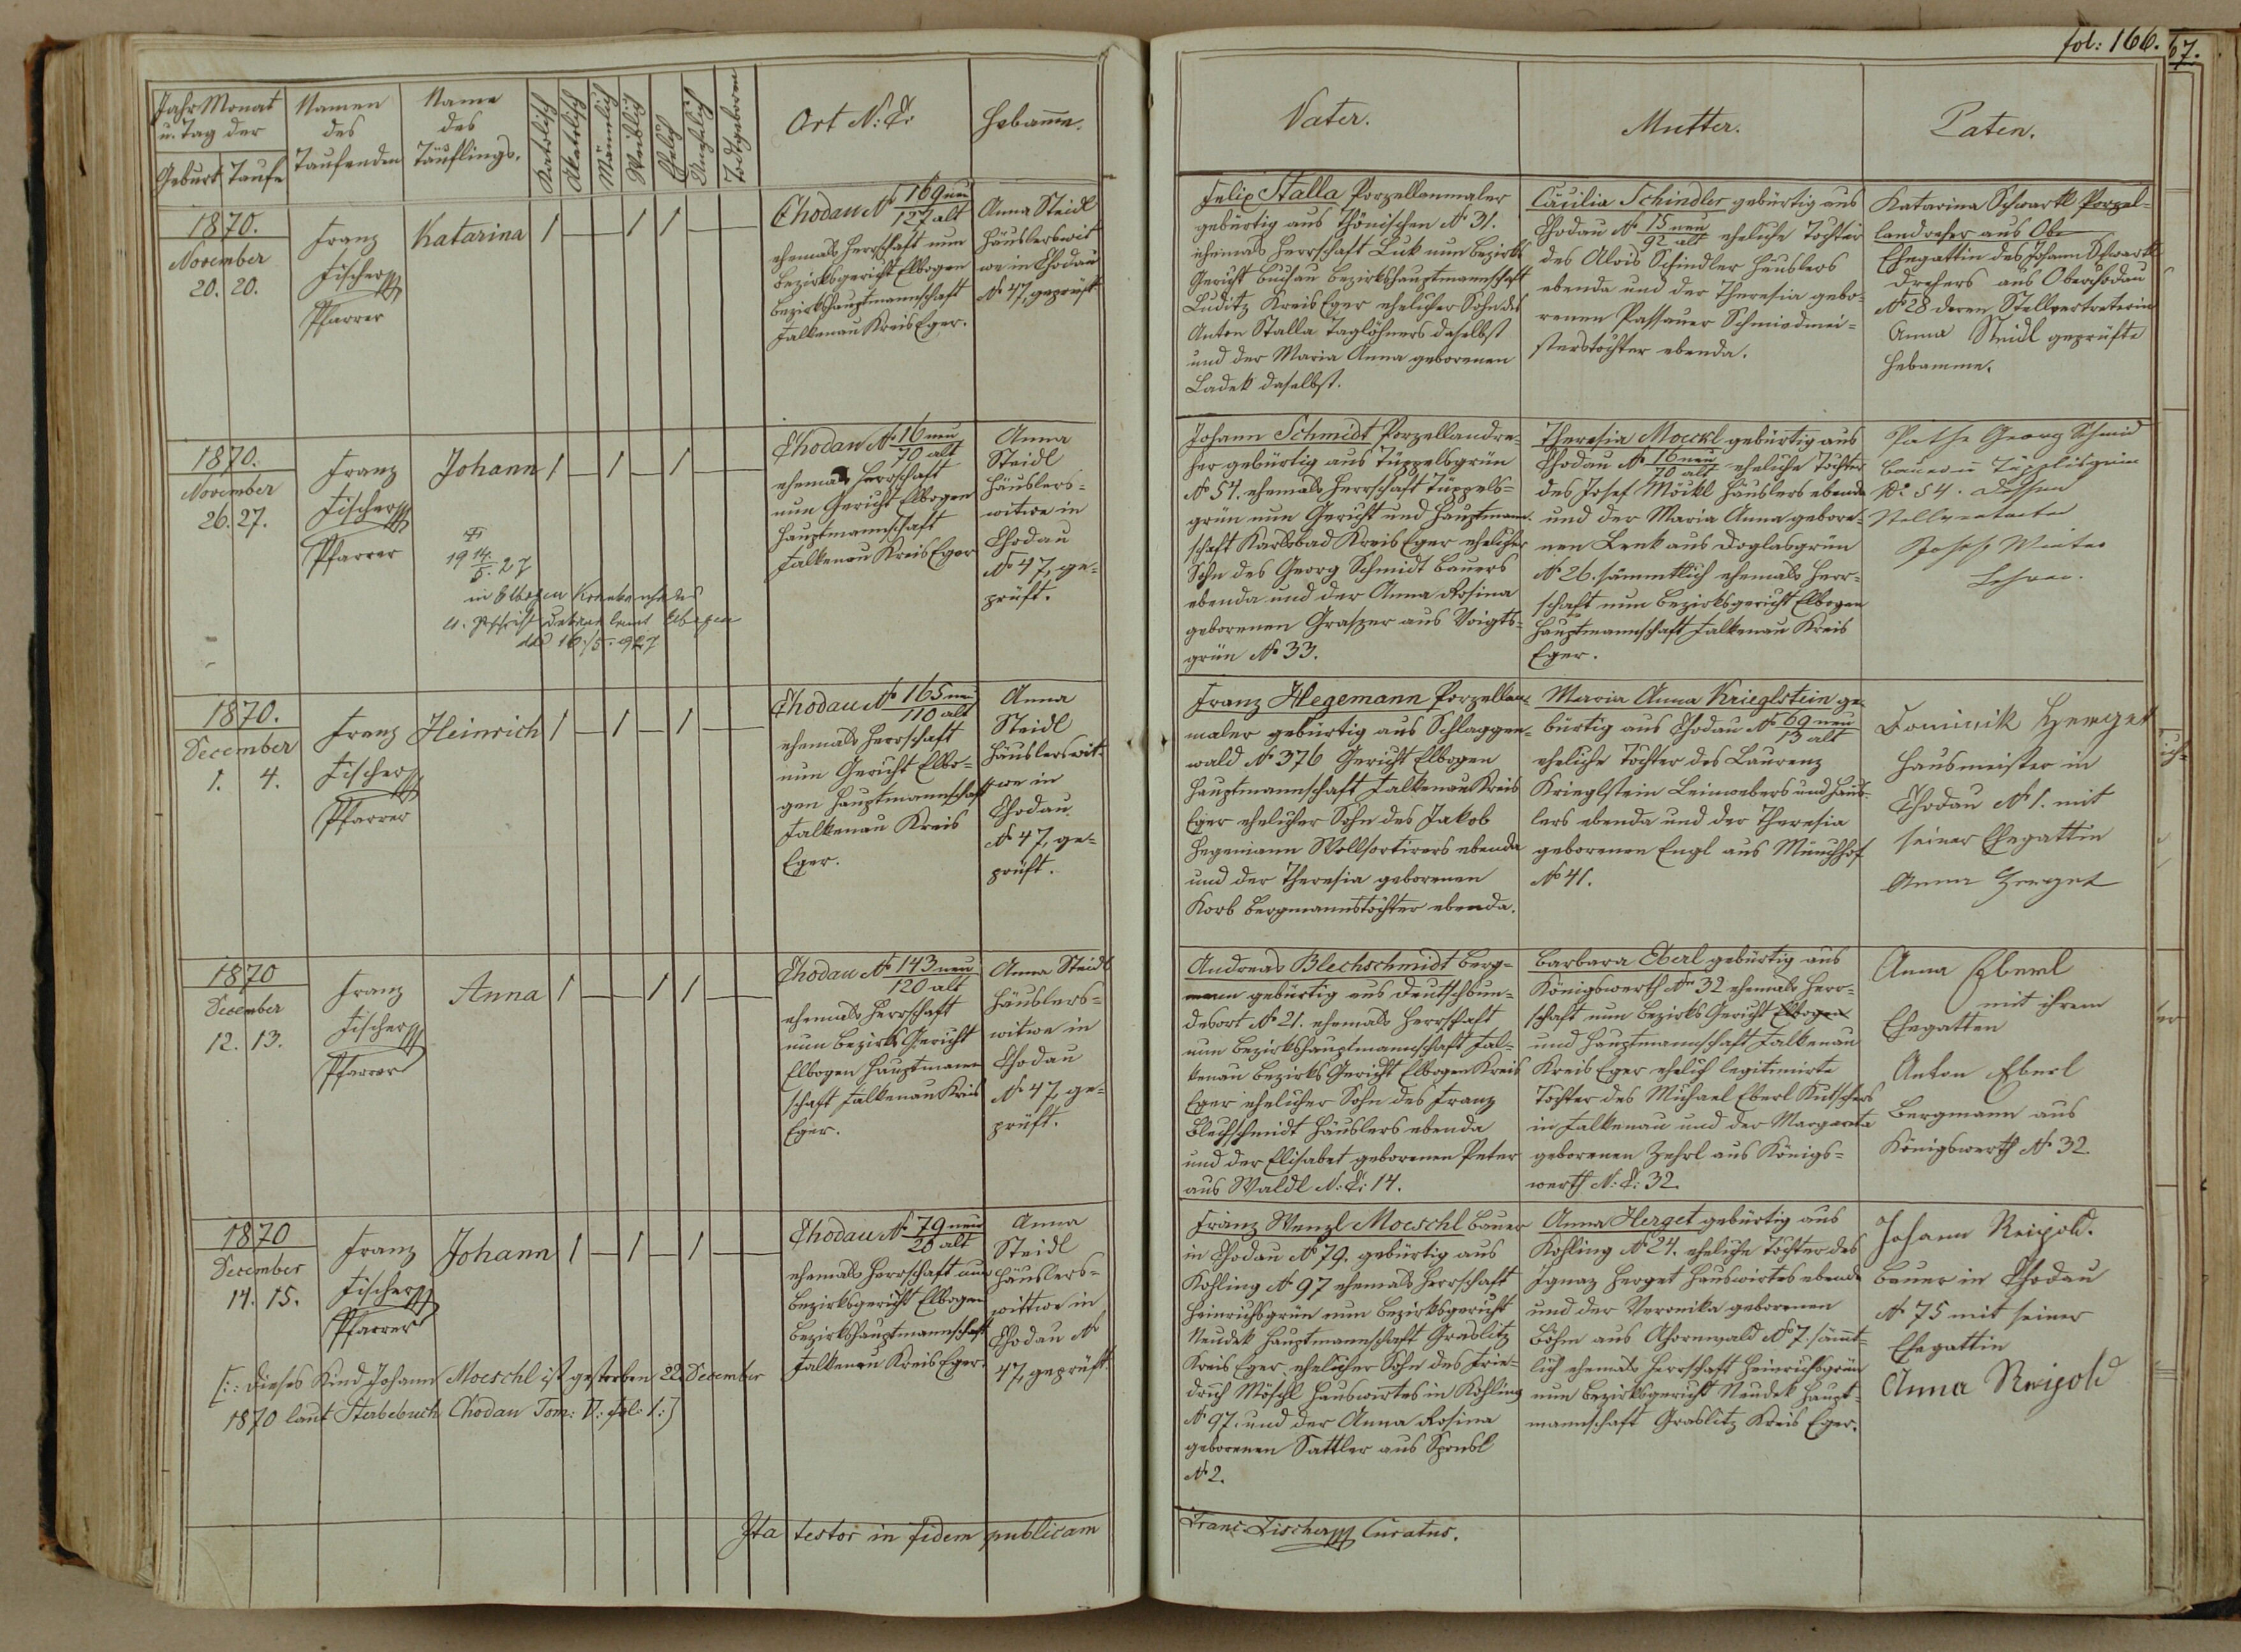 fol: 166.
67.
Jahr Monat
u. Tag der
Geburt
Taufe
Namen
des
Taufenden
Name
des
Täuflings.
Katolisch
Akatolisch
Männlich
Weiblich
Ehelich
Unehelich
Todtgeboren
Ort N: C:
Hebamme.
Vater.
Mutter.
Paten.
1870.
November
20. 20.
Franz
Fischer
Pfarrer
Katarina
Chodau No 169 neu
127 alt
ehemals Herrschaft nun
Bezirksgericht Elbogen
Bezirkshauptmannschaft
Falkenau Kreis Eger.
Anna Steidl
Häuslerswit
we in Chodau
No 47, geprüft.
Felix Stalla Porzellanmaler
gebürtig aus Thönischen No 31.
ehemals Herrschaft Luk nun Bezirks
Gericht Buchau Bezirkshauptmannschaft
Luditz Kreis Eger ehelicher Sohn des
Anton Stalla Taglöhners daselbst
und der Maria Anna geborenen
Ladek daselbst.
Cäcilia Schindler gebürtig aus
Chodau No 15 neu
92 alt eheliche Tochter
des Alois Schindler Häuslers
ebenda und der Theresia gebo-
renen Passauer Schmiedmei-
sterstochter ebenda.
Katarina Schwartl Porzel-
landreher aus Obe
Ehegattin des Johann Schwartl
Drehers aus Oberchodau
No 28 deren Stellvertreterin
Anna Steidl geprüfte
Hebamme.
1870.
November
26. 27.
Franz
Fischer
Pfarrer
Johann
19 14/5. 27
in Elbogen Krankenhaus
lt. Zuschrift Dekanalamt Elbogen
ddo 16./5. 1927
Chodau No 16 neu
70 alt
ehemals Herrschaft
nun Gericht Elbogen
Hauptmannschaft
Falkenau Kreis Eger
Anna
Steidl
Häuslers-
witwe in
Chodau
No 47, ge-
prüft.
Johann Schmidt Porzellandre-
her gebürtig aus Tüppelsgrün
No 54. ehemals Herrschaft Tüppels-
grün nun Gericht und Hauptmann-
schaft Karlsbad Kreis Eger ehelicher
Sohn des Georg Schmidt Bauers
ebenda und der Anna Rosina
geborenen Graszer aus Voigts-
grün No 33.
Theresia Moeckl gebürtig aus
Chodau No 16 neu
70 alt eheliche Tochter
des Josef Möckl Häuslers ebenda
und der Maria Anna gebore-
nen Lenk aus Doglasgrün
No 26. sämmtlich ehemals Herr-
schaft nun Bezirksgericht Elbogen
Hauptmannschaft Falkenau Kreis
Eger.
Pathe Georg Schmid
Bauer in Tüppelsgrün
No 54. dessen
Stellvertreter
Joseph Winter
Lehrer.
1870.
December
1. 4.
Franz
Fischer
Pfarrer
Heinrich
Chodau No 165 neu
110 alt
ehemals Herrschaft
nun Gericht Elbo-
gen Hauptmannschaft
Falkenau Kreis
Eger.
Anna
Steidl
Häuslerswit-
we in
Chodau
No 47, ge-
prüft.
Franz Hegemann Porzellan-
maler gebürtig aus Schlaggen-
wald No 376 Gericht Elbogen
Hauptmannschaft Falkenau Kreis
Eger ehelicher Sohn des Jakob
Hegemann Wollsortirers ebenda
und der Theresia geborenen
Korb Bergmannstochter ebenda.
Maria Anna Krieglstein ge-
bürtig aus Chodau No 69 neu
13 alt
eheliche Tochter des Laurenz
Krieglstein Leinwebers und Häus-
lers ebenda und der Theresia
geborenen Engl aus Münchhof
No 41.
Dominik Herget
Hausmeister in
Chodau No 1. mit
seiner Ehegattin
Anna Herget
1870
December
12. 13.
Franz
Fischer
Pfarrer
Anna
Chodau No 143 neu
120 alt
ehemals Herrschaft
nun Bezirks Gericht
Elbogen Hauptmann
schaft Falkenau Kreis
Eger.
Anna Steidl
Häuslers-
witwe in
Chodau
No 47, ge-
prüft.
Andreas Blechschmidt Berg-
mann gebürtig aus Deutschbun-
desort No 21. ehemals Herrschaft
nun Bezirkshauptmannschaft Fal-
kenau Bezirks Gericht Elbogen Kreis
Eger ehelicher Sohn des Franz
Blechschmidt Häuslers ebenda
und der Elisabet geborenen Peter
aus Waldl N: C: 14.
Barbara Eberl gebürtig aus
Königswerth No 32 ehemals Herr-
schaft nun Bezirks Gericht Elbogen
und Hauptmannschaft Falkenau
Kreis Eger ehelich legitimirte
Tochter des Michael Eberl Kutschers
in Falkenau und der Margareta
geborenen Zehrl aus Königs-
werth N: C: 32.
Anna Eberl
mit ihrem
Ehegatten
Anton Eberl
Bergmann aus
Königswerth No 32
1870
December
14. 15.
Franz
Fischer
Pfarrer
Johann
[:: dieses Kind Johann Moeschl ist gestorben 22 December
1870 laut Sterbebuch Chodau Tom: V: fol: 1:]
Chodau No 79 neu
20 alt
ehemals Herrschaft nun
Bezirksgericht Elbogen
Bezirkshauptmannschaft
Falkenau Kreis Eger.
Anna
Steidl
Häuslers-
wittwe in
Chodau No
47, geprüft.
Franz Wenzl Moeschl Bauer
in Chodau No 79. gebürtig aus
Kohling No 97 ehemals Herrschaft
Heinrichsgrün nun Bezirksgericht
Neudek Hauptmannschaft Graslitz
Kreis Eger, ehelicher Sohn des Frie-
drich Möschl Hauswirtes in Kohling
No 97. und der Anna Rosina
geborenen Sattler aus Sponsl
No 2.
Anna Herget gebürtig aus
Kohling No 24. eheliche Tochter des
Ignaz Herget Hauswirtes ebenda
und der Veronika geborenen
Böhm aus Ahornwald No 7. sämmt-
lich ehemals Herrschaft Heinrichsgrün
nun Bezirksgericht Neudek Haupt-
mannschaft Graslitz Kreis Eger.
Johann Reipold.
Bauer in Chodau
No 75 mit seiner
Ehegattin
Anna Reipold
Ita testor in fidem publicam
Franc Fischer Curatus.